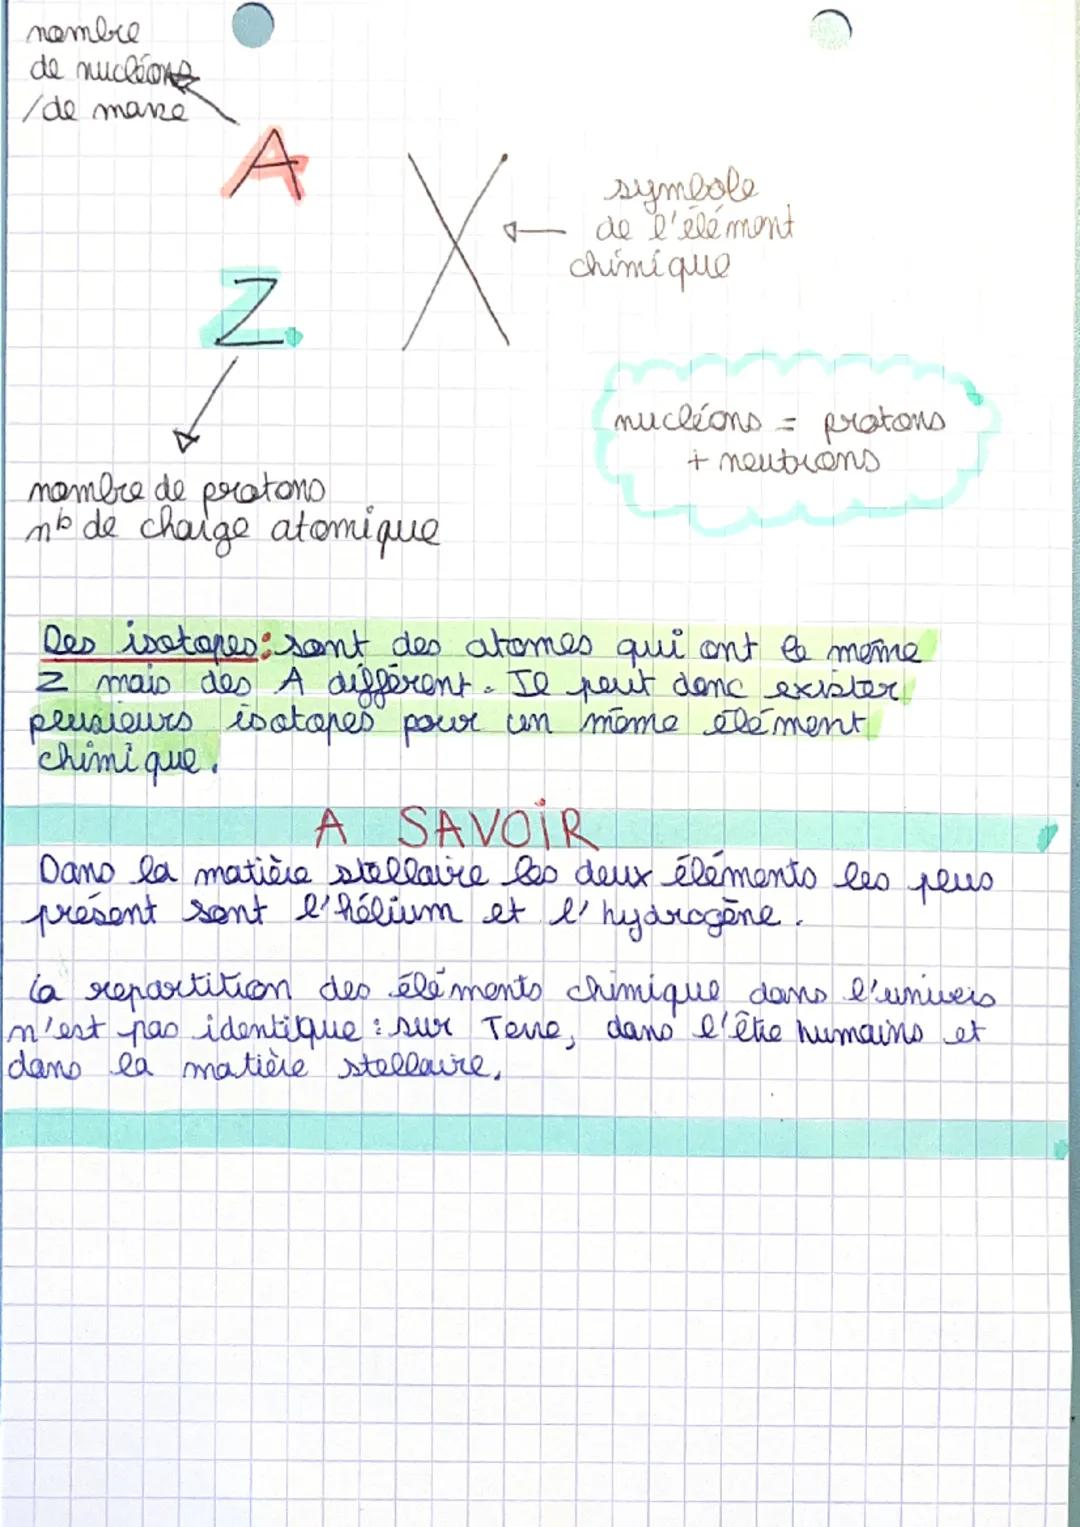 nombre
de nucléons
/de masse
A
X
symbole
de l'élément
chimique
Z
nucléons = protons
+ neutrons
nombre de protons
nb de charge atomique
Des isotopes: sont des atomes qui ont le même
Z mais des A différent. Il peut donc exister
plusieurs isotopes pour un même élément
chimique.
A SAVOIR
Dans la matière stellaire les deux éléments les plus
présent sont l'hélium et l'hydrogène.
la repartition des éléments chimique dans l'univers
n'est pas identique : sur Terre, dans l'être humains et
dans la matière stellaire.